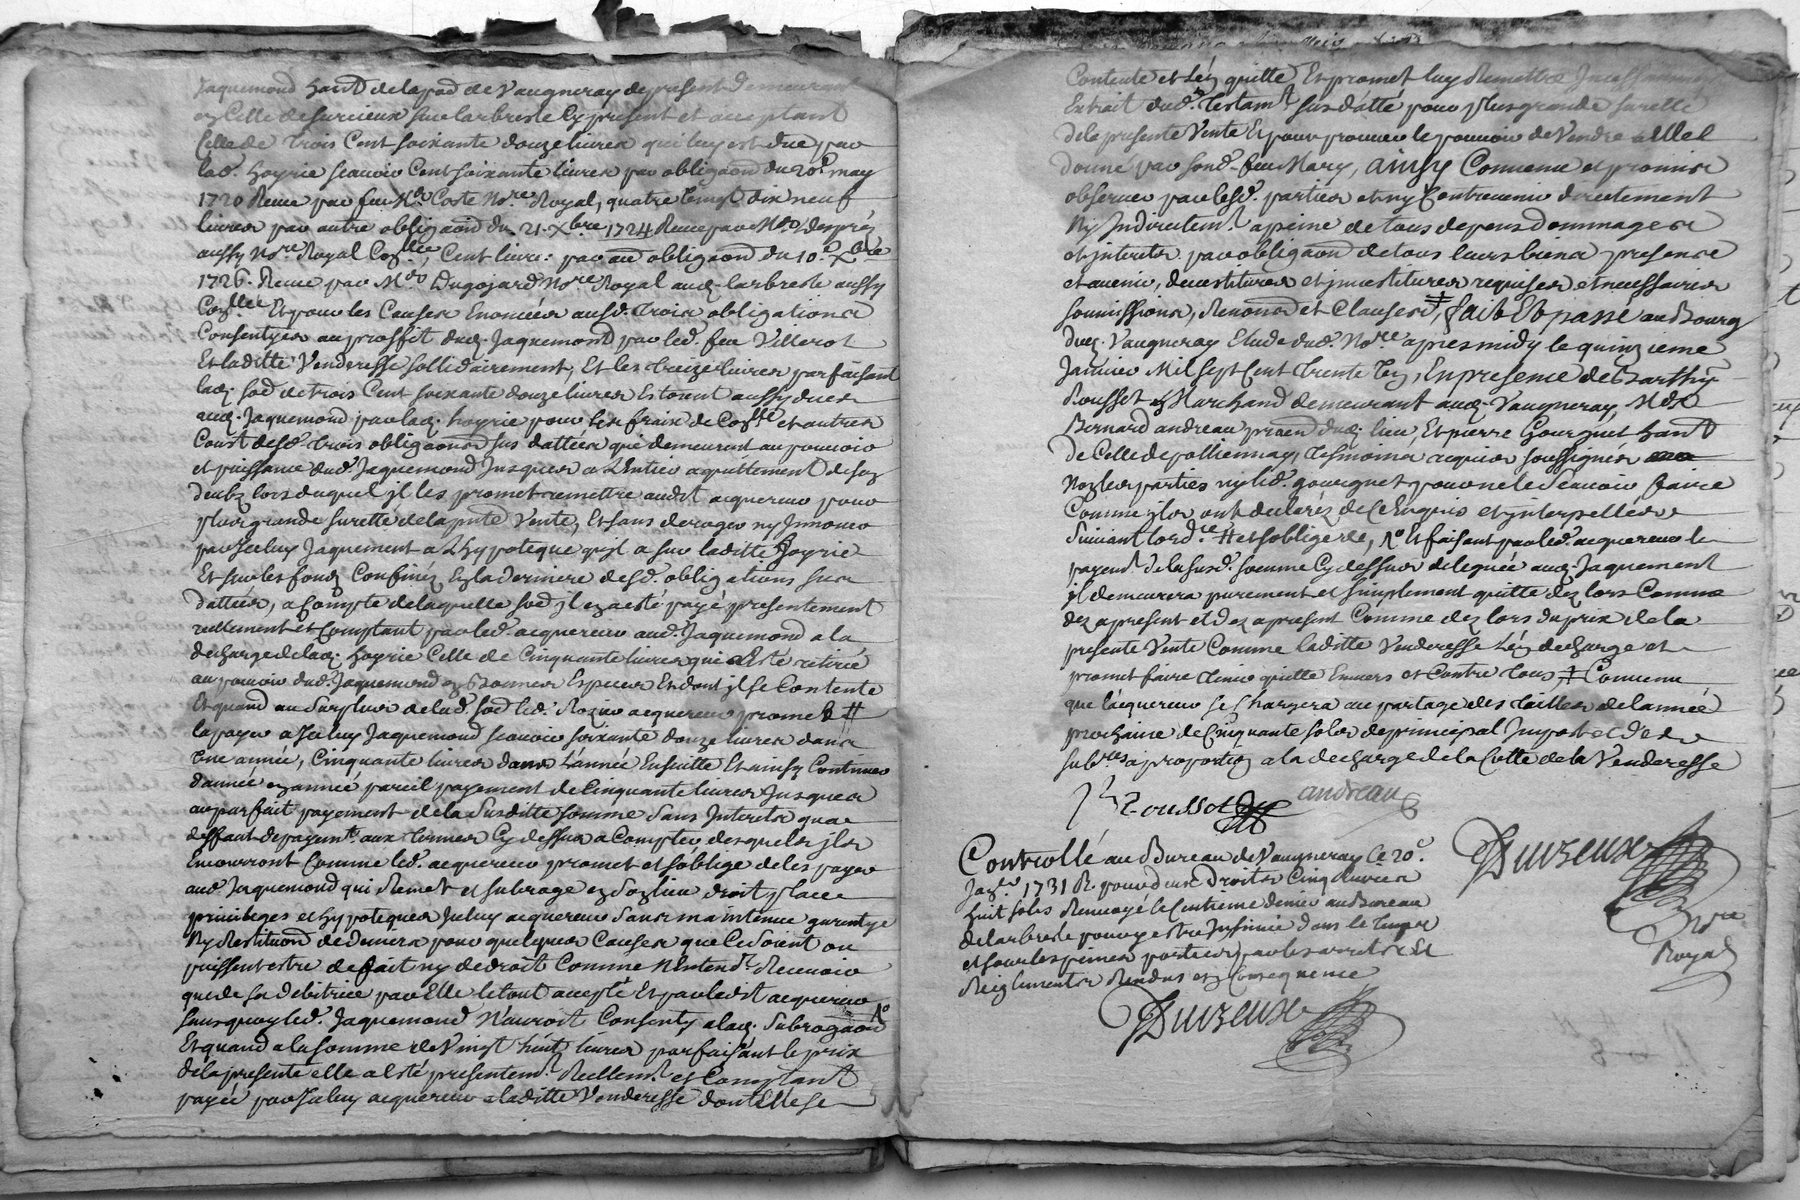 Jaquemond habt. de la parr. de Vaugneray de present demeurant
en Celle de Surcieux sur Larbresle Cy present et acceptant
Celle de Trois Cent soixante douze livres qui luy est due par
lad. hoyrie scavoir Cent soixante livres par obligaôn du 20e. may
1720 Receue par feu Me. Coste Nore. Royal, quatre Vingt dix neuf
livres par autre obligaôn du 21. Xbre 1724 Receue par Me. desprez
aussy Nore. Royal Coŋllée, Cent livres par aue obligaôn du 10e. Xbre
1726. Receue par Me. Dugojard Nore Royal aud. Larbresle aussy
Coŋllée Et pour les Causes Enoncées ausd. Trois obligations
Consentyes au proffit dud. Jaquemond par led. feu Villerot
Et laditte Venderesse sollidairement, Et les treize livres parfaisant
lad. soê de trois Cent soixante douze livres Estoient aussy dues
aud. Jaquemond par lad. hoyrie pour les fraix de Coŋlle et autres
Coust desd. trois obligaons sus dattées qui demeurent au pouvoir
et puissance dud. Jaquemond Jusques a L'Entier aquittement desd.
deubz lors duquel jl les promet remettre audit acquereur pour
plus grande suretté de la pnte Vente, Et sans deroger ny Jnnover
par Jceluy Jaquement a L'hypoteque qu'jl a sur laditte hoyrie
Et sur les fondz Confinéz En la derniere desd. obligations sus
dattées, a Compte de laquelle soê jl en a esté payé presentement
reellement et Comptant par led. acquereur aud. Jaquemond a la
decharge de lad. hoyrie Celle de Cinquante livres qui a Esté retirée
au pouvoir dud. Jaquemond en Bonnes Especes Et dont jl se Contente
Et quand au Surplus de lad. soê led. Rozier acquereur promet #
la payer a Jceluy Jaquemond scavoir soixante douze livres dans
Une année, Cinquante livres dans L'année Ensuitte Et ainsy Continuer
d'année en année pareil payement de Cinquante livres Jusques
au parfait payement de la Susditte somme Sans Interests qu'a
deffaut de payemt. aux termes Cy dessus a Compter desquels jls
Encourront Comme led. acquereur promet et s'oblige de les payer
aud. Jaquemond qui Remet et subroge en son lieu droit place
privileges et hypoteques Jceluy acquereur Sans maintenue garentye
Ny Restituôn de deniers pour quelques Causes que Ce Soient ou
puissent estre de fait ny de droit Comme N'entendt. Recevoir
que de sa debitrice par Elle le tout accepté Et par ledit acquereur
sans quoy led. Jaquemond N'auroit Consenty a lad. Subrogaôn No
Et quand a la somme de Vingt huit livres parfaisant le prix
de la presente elle a esté presentemt. Reellemt. et Comptant
payée par Jceluy acquereur a laditte Venderesse dont Elle se
Contente et L'en quitte Et promet luy Remettre
Extrait dud. Testamt. sus datté pour plus grande suretté
de la presente Vente Et pour prouver le pouvoir de Vendre a Elle
donné par sond. feu Mary, ainsy Convenu et promis
observer par lesd. parties et n'y Contrevenir directement
Ny Indirectemt. a peine de tous depens dommages
et interets par obligaôn de tous leurs biens presens
et avenir, devestitures et jnvestitures requises et necessaires
soumissions, Renonôns et Clauses, ≠ fait Et passé au Bourg
dud. Vaugneray Etude dud. Nore apres midy le quinzieme
Janvier Mil sept Cent Trente Un, En presence de S Barthy.
Rousset Marchand demeurant aud. Vaugneray, Me.
Bernard andreau praen dud. lieu, Et pierre Gourguet habt.
de Celle de pollionnay, tesmoins requis soussignes
Non les parties ny led. gourguet pour ne le scavoir faire
Comme jls ont declarés de Ce Enquis et jnterpelléés
Suivant lord.ce # et s'oblige de, No Et faisant par led. acquereur le
payemt. de la susd. somme Cy dessus deleguée aud. Jaquement
jl demeurera purement et simplement quitte dez lors Comme
dez apresent et dez apresent Comme dez lors du prix de la
presente Vente Comme laditte Venderesse L'en decharge et
promet faire tenir quitte Envers et Contre tous ≠ Convenu
que l'acquereur se Chargera au partage des tailles de l'année
prochaine de Cinquante solos de principal Impost et des
subres. a proportion a la decharge de la Cotte de la Venderesse
Rousset andreau
Duvzeux
Nore
Royal
Controllé au Bureau de Vaugneray le 20e.
Janer. 1731 R. pour deux Droits Cinq livres
huit sols Renvoyé le Centieme denier au Bureau
de Larbresle pour y estre Insinué dans le Temps
et sous les peines portées par les arrets Et
Reiglements Rendus en Consequence
Duvzeux